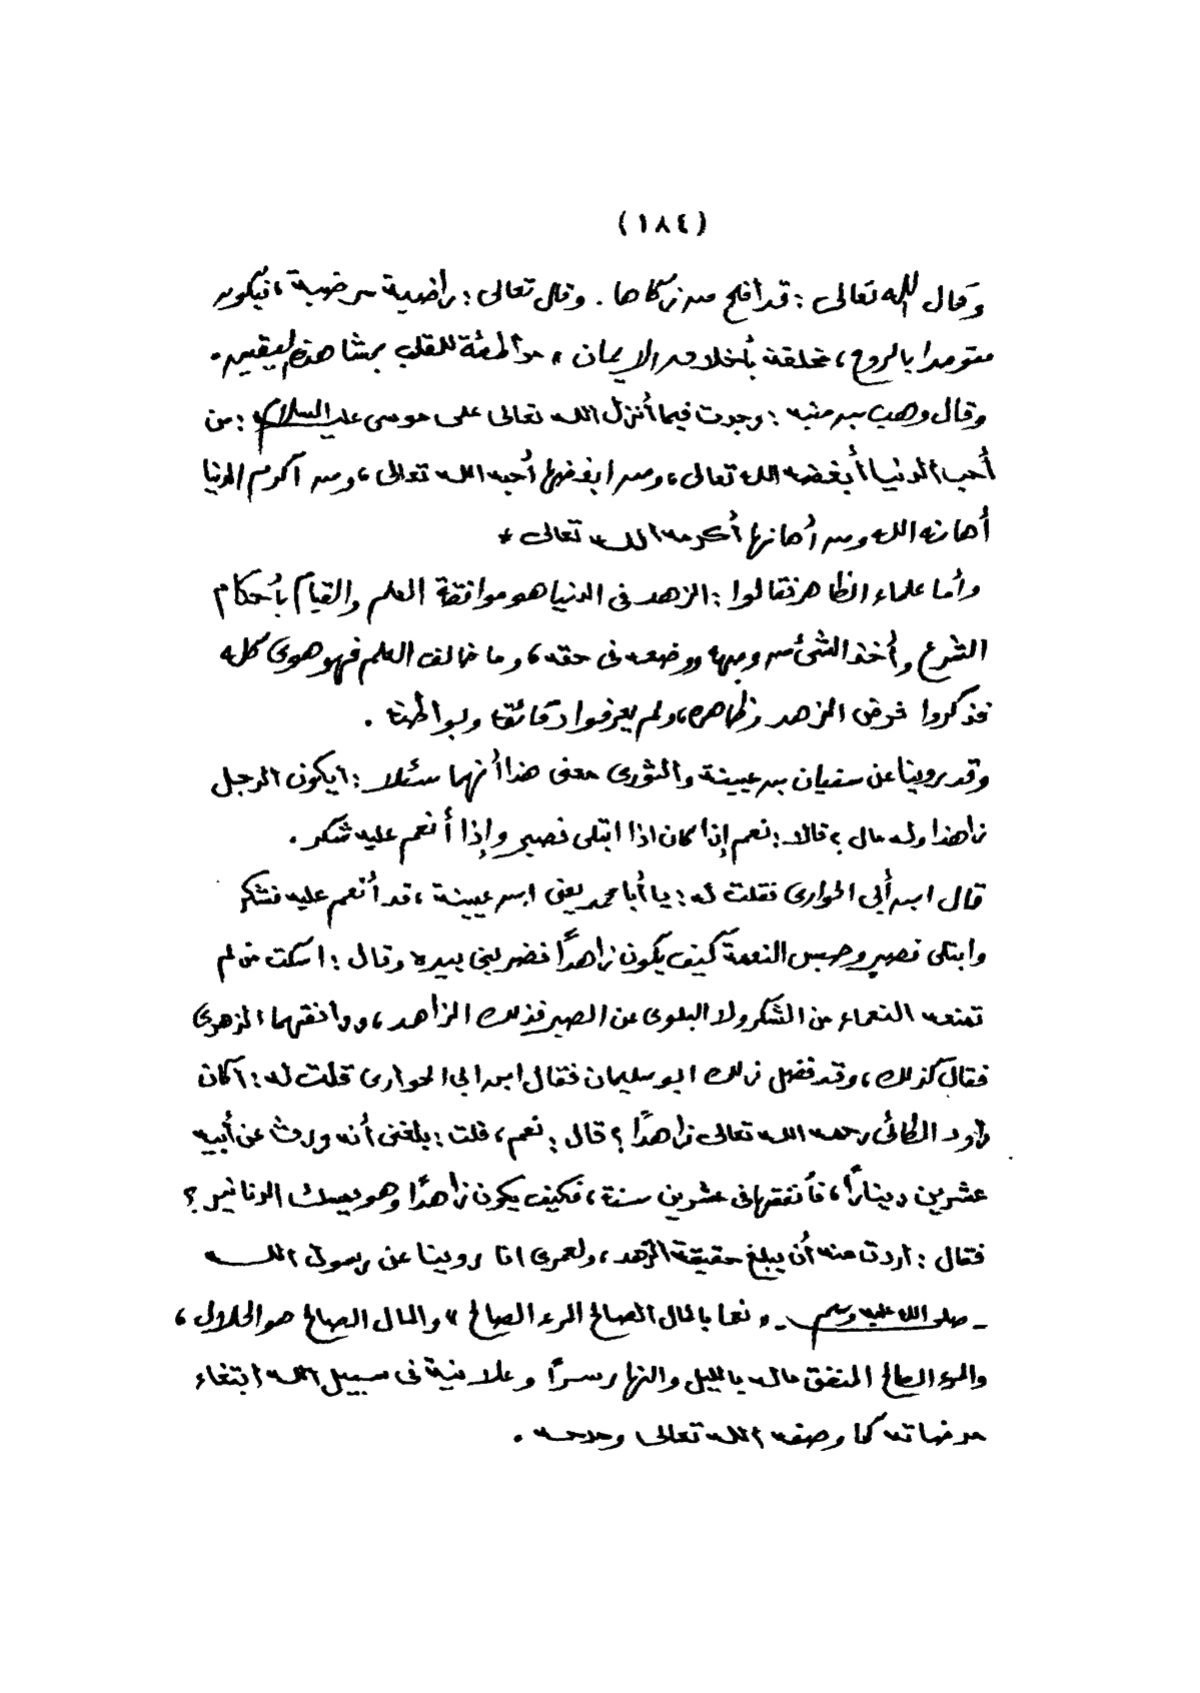 (١٨٤)
وقال الله تعالى : قد أفلح من زكاها . وقال تعالى : راضية مرضية ، فيكون
متوحدا بالروح ، متخلقة بأخلاق الإيمان ، مواطئة للقلب بمشاهدة اليقين .
وقال وهب بن منبه : وجدت فيما أنزل الله تعالى على موسى عليه السلام : من
أحب الدنيا أبغضه الله تعالى ، ومن ابغضها أحبه الله تعالى ، ومن أكرم الدنيا
أهانه الله ومن أهانها أكرمه الله تعالى *
وأما علماء الظاهر فقالوا : الزهد فى الدنيا هو موافقة العلم والقيام بأحكام
الشرع وأخذ الشئ من وجهه ووضعه فى حقه ، وما خالف العلم فهو هوى كله
فذكروا فرض الزهد وظاهره ، ولم يعرفوا دقائقه وبواطنه .
وقد روينا عن سفيان بن عيينة والثورى معنى هذا أنهما سئلا : ايكون الرجل
زاهدا وله مال ؟ قالا : نعم إذا كان اذا ابتلى فصبر وإذا أنعم عليه شكر .
قال ابن أبى الحوارى فقلت له : يا أبا محمد يعنى ابن عيينة ، قد أنعم عليه فشكر
وابتلى فصبر وحبس النعمة كيف يكون زاهدًا فضربنى بيده وقال : اسكت من لم
تمنعه النعماء من الشكر ولا البلوى عن الصبر فذلك الزاهد ، ووافقهما الزهرى
فقال كذلك ، وقد فصل ذلك ابو سليمان فقال ابن ابى الحوارى قلت له : أكان
داود الطائى رحمه الله تعالى زاهدًا ؟ قال : نعم ، قلت : بلغنى أنه ورث عن أبيه
عشرين دينارًا ، فأنفقها فى عشرين سنة ، فكيف يكون زاهدًا وهو يمسك الدنانير ؟
فقال : اردت منه أن يبلغ حقيقة الزهد ، ولعمرى انا روينا عن رسول الله
- صلى الله عليه وسلم - « نعما بالمال الصالح المرء الصالح » والمال الصالح هو الحلال ،
والمرء الصالح المنفق ماله بالليل والنهار سرًا وعلانية فى سبيل الله ابتغاء
مرضاته كما وصفه الله تعالى ومدحه .